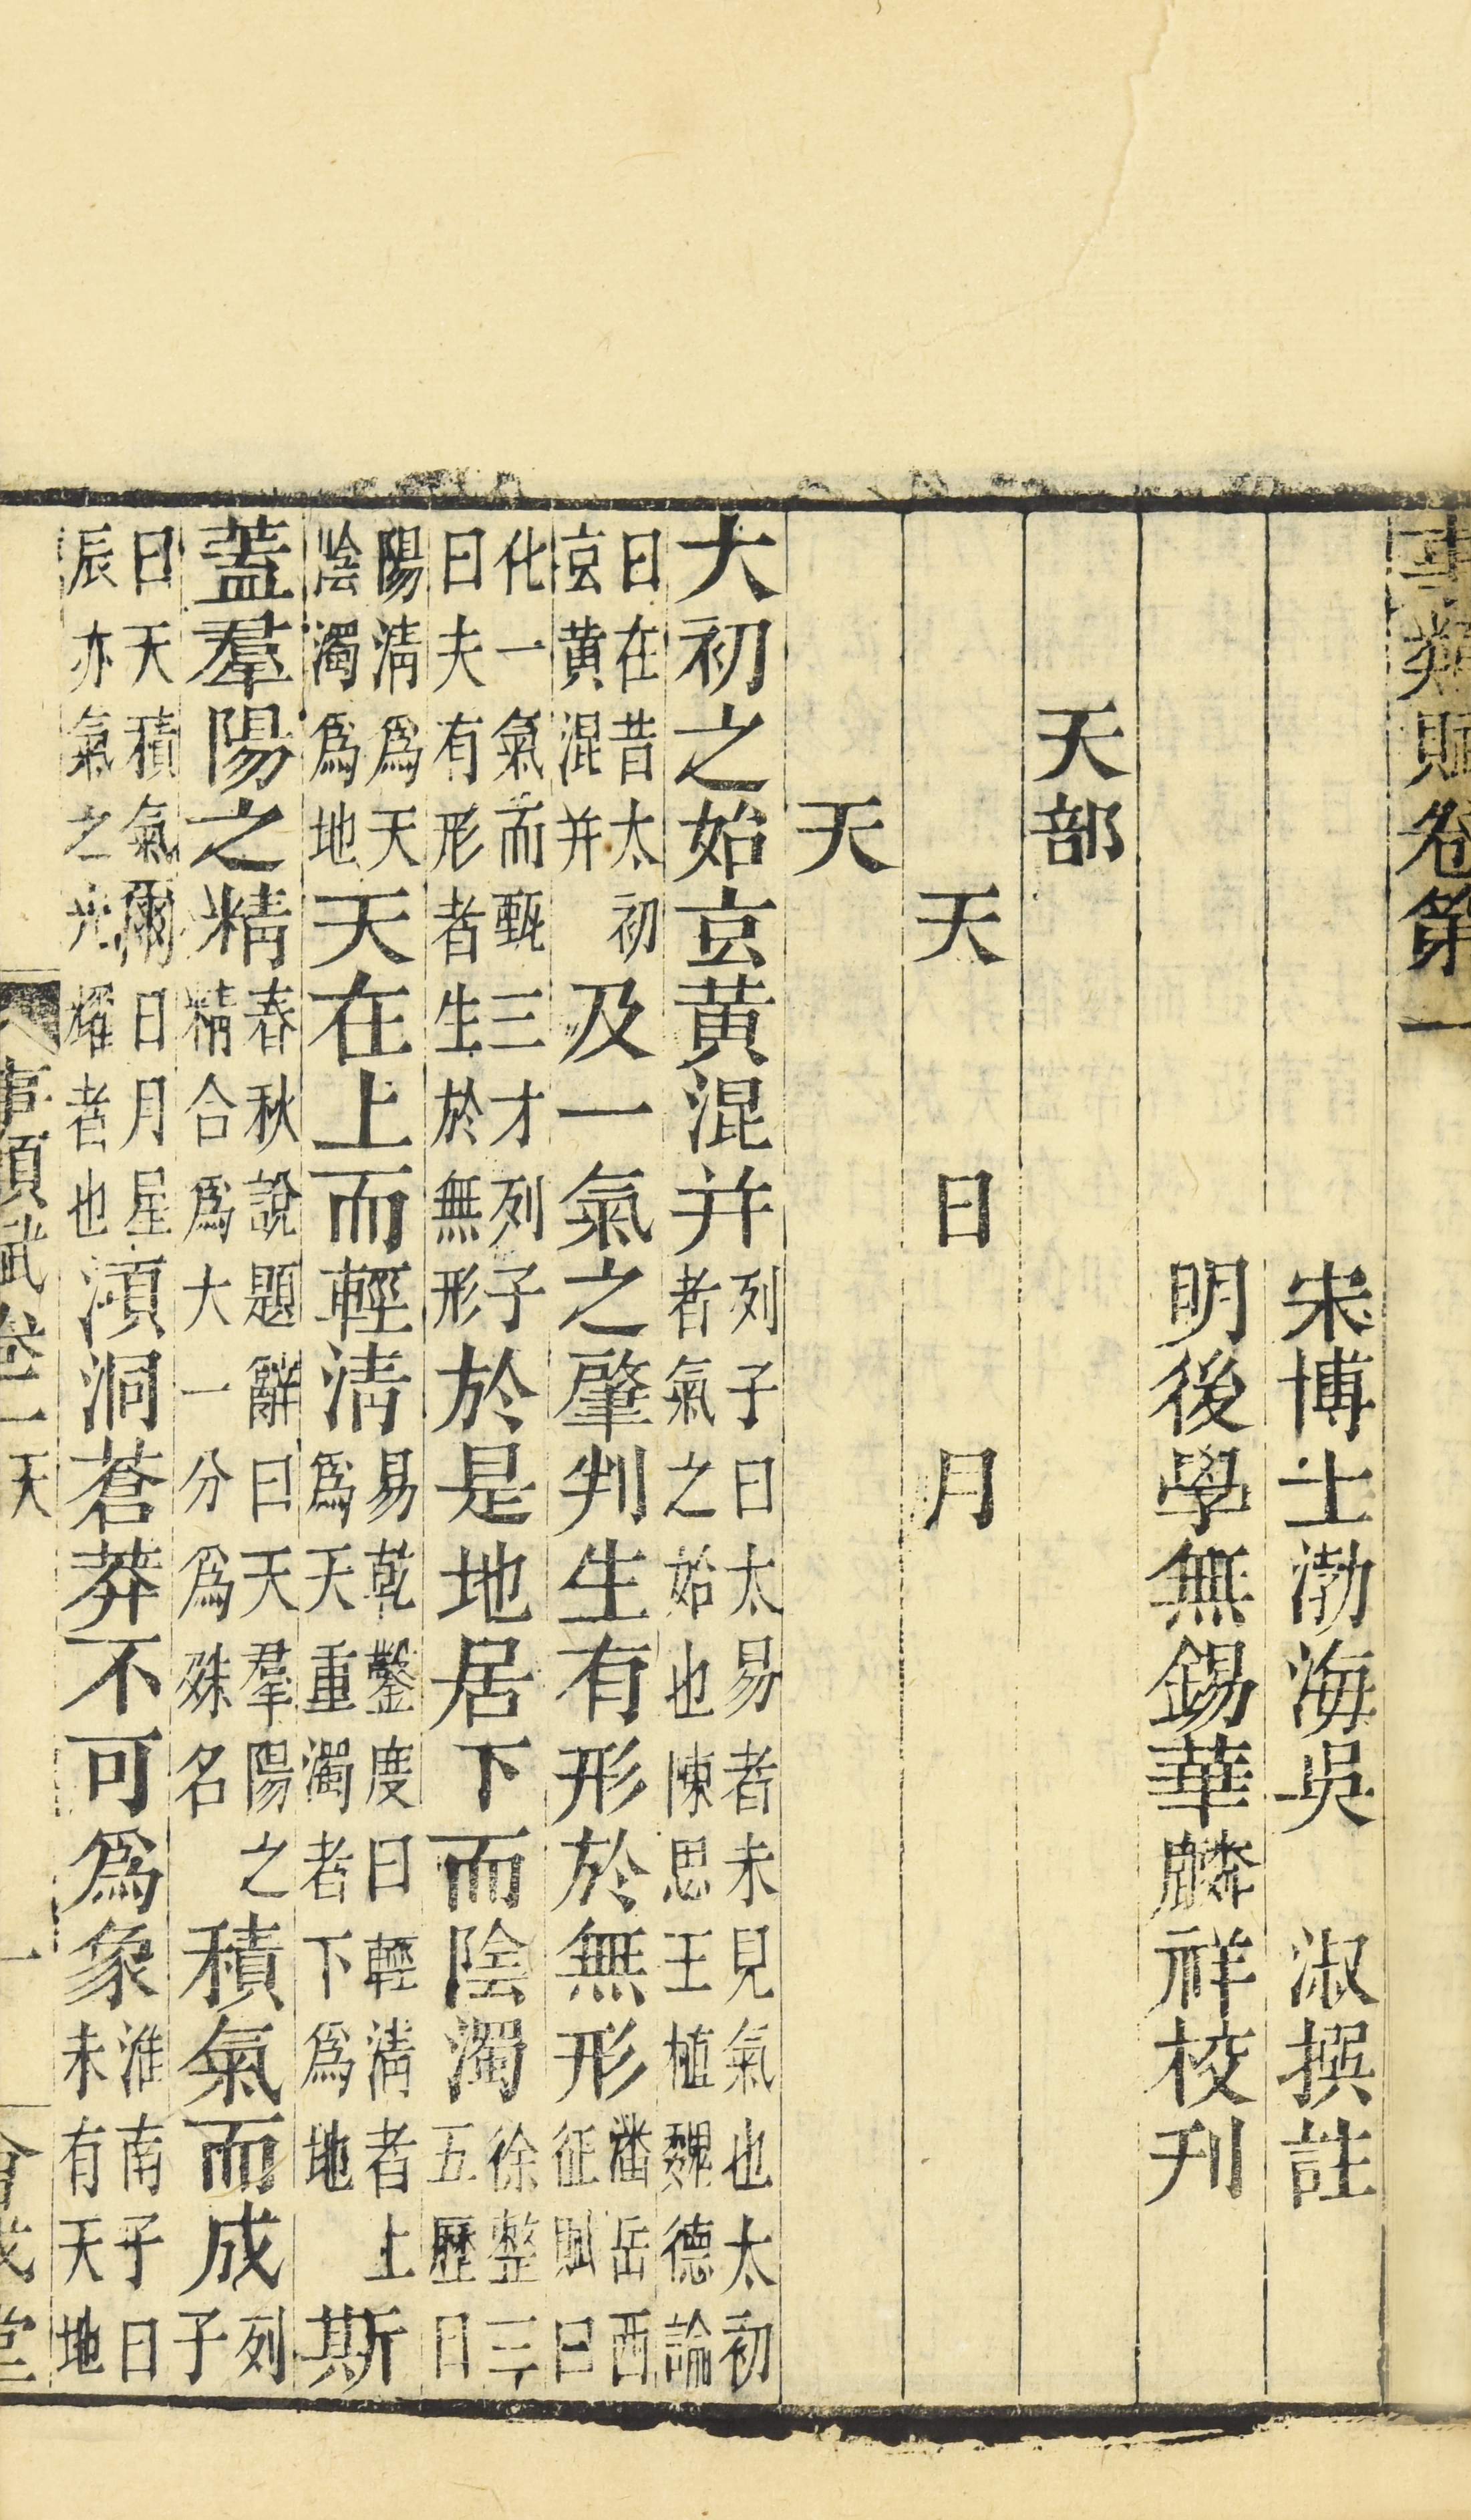 事類賦卷第一
宋博士渤海吳　淑撰註
明後學無錫華麟祥校刊
天部
天　日　月
天
大初之始玄黃混并列子曰太易者未見氣也太初者氣之始也陳思王植魏德論
曰在昔太初玄黃混并及一氣之肇判生有形於無形潘岳西征賦曰
化一氣而甄三才列子曰夫有形者生於無形於是地居下而陰濁徐整三五歷曰
陽清爲天陰濁爲地天在上而輕清易乾鑿度曰輕清者上爲天重濁者下爲地斯
蓋羣陽之精春秋說題辭曰天羣陽之精合爲大一分爲殊名積氣而成列子
曰天積氣爾日月星辰亦氣之光耀者也澒洞蒼莽不可爲象淮南子曰未有天地
事類賦卷一　天　一